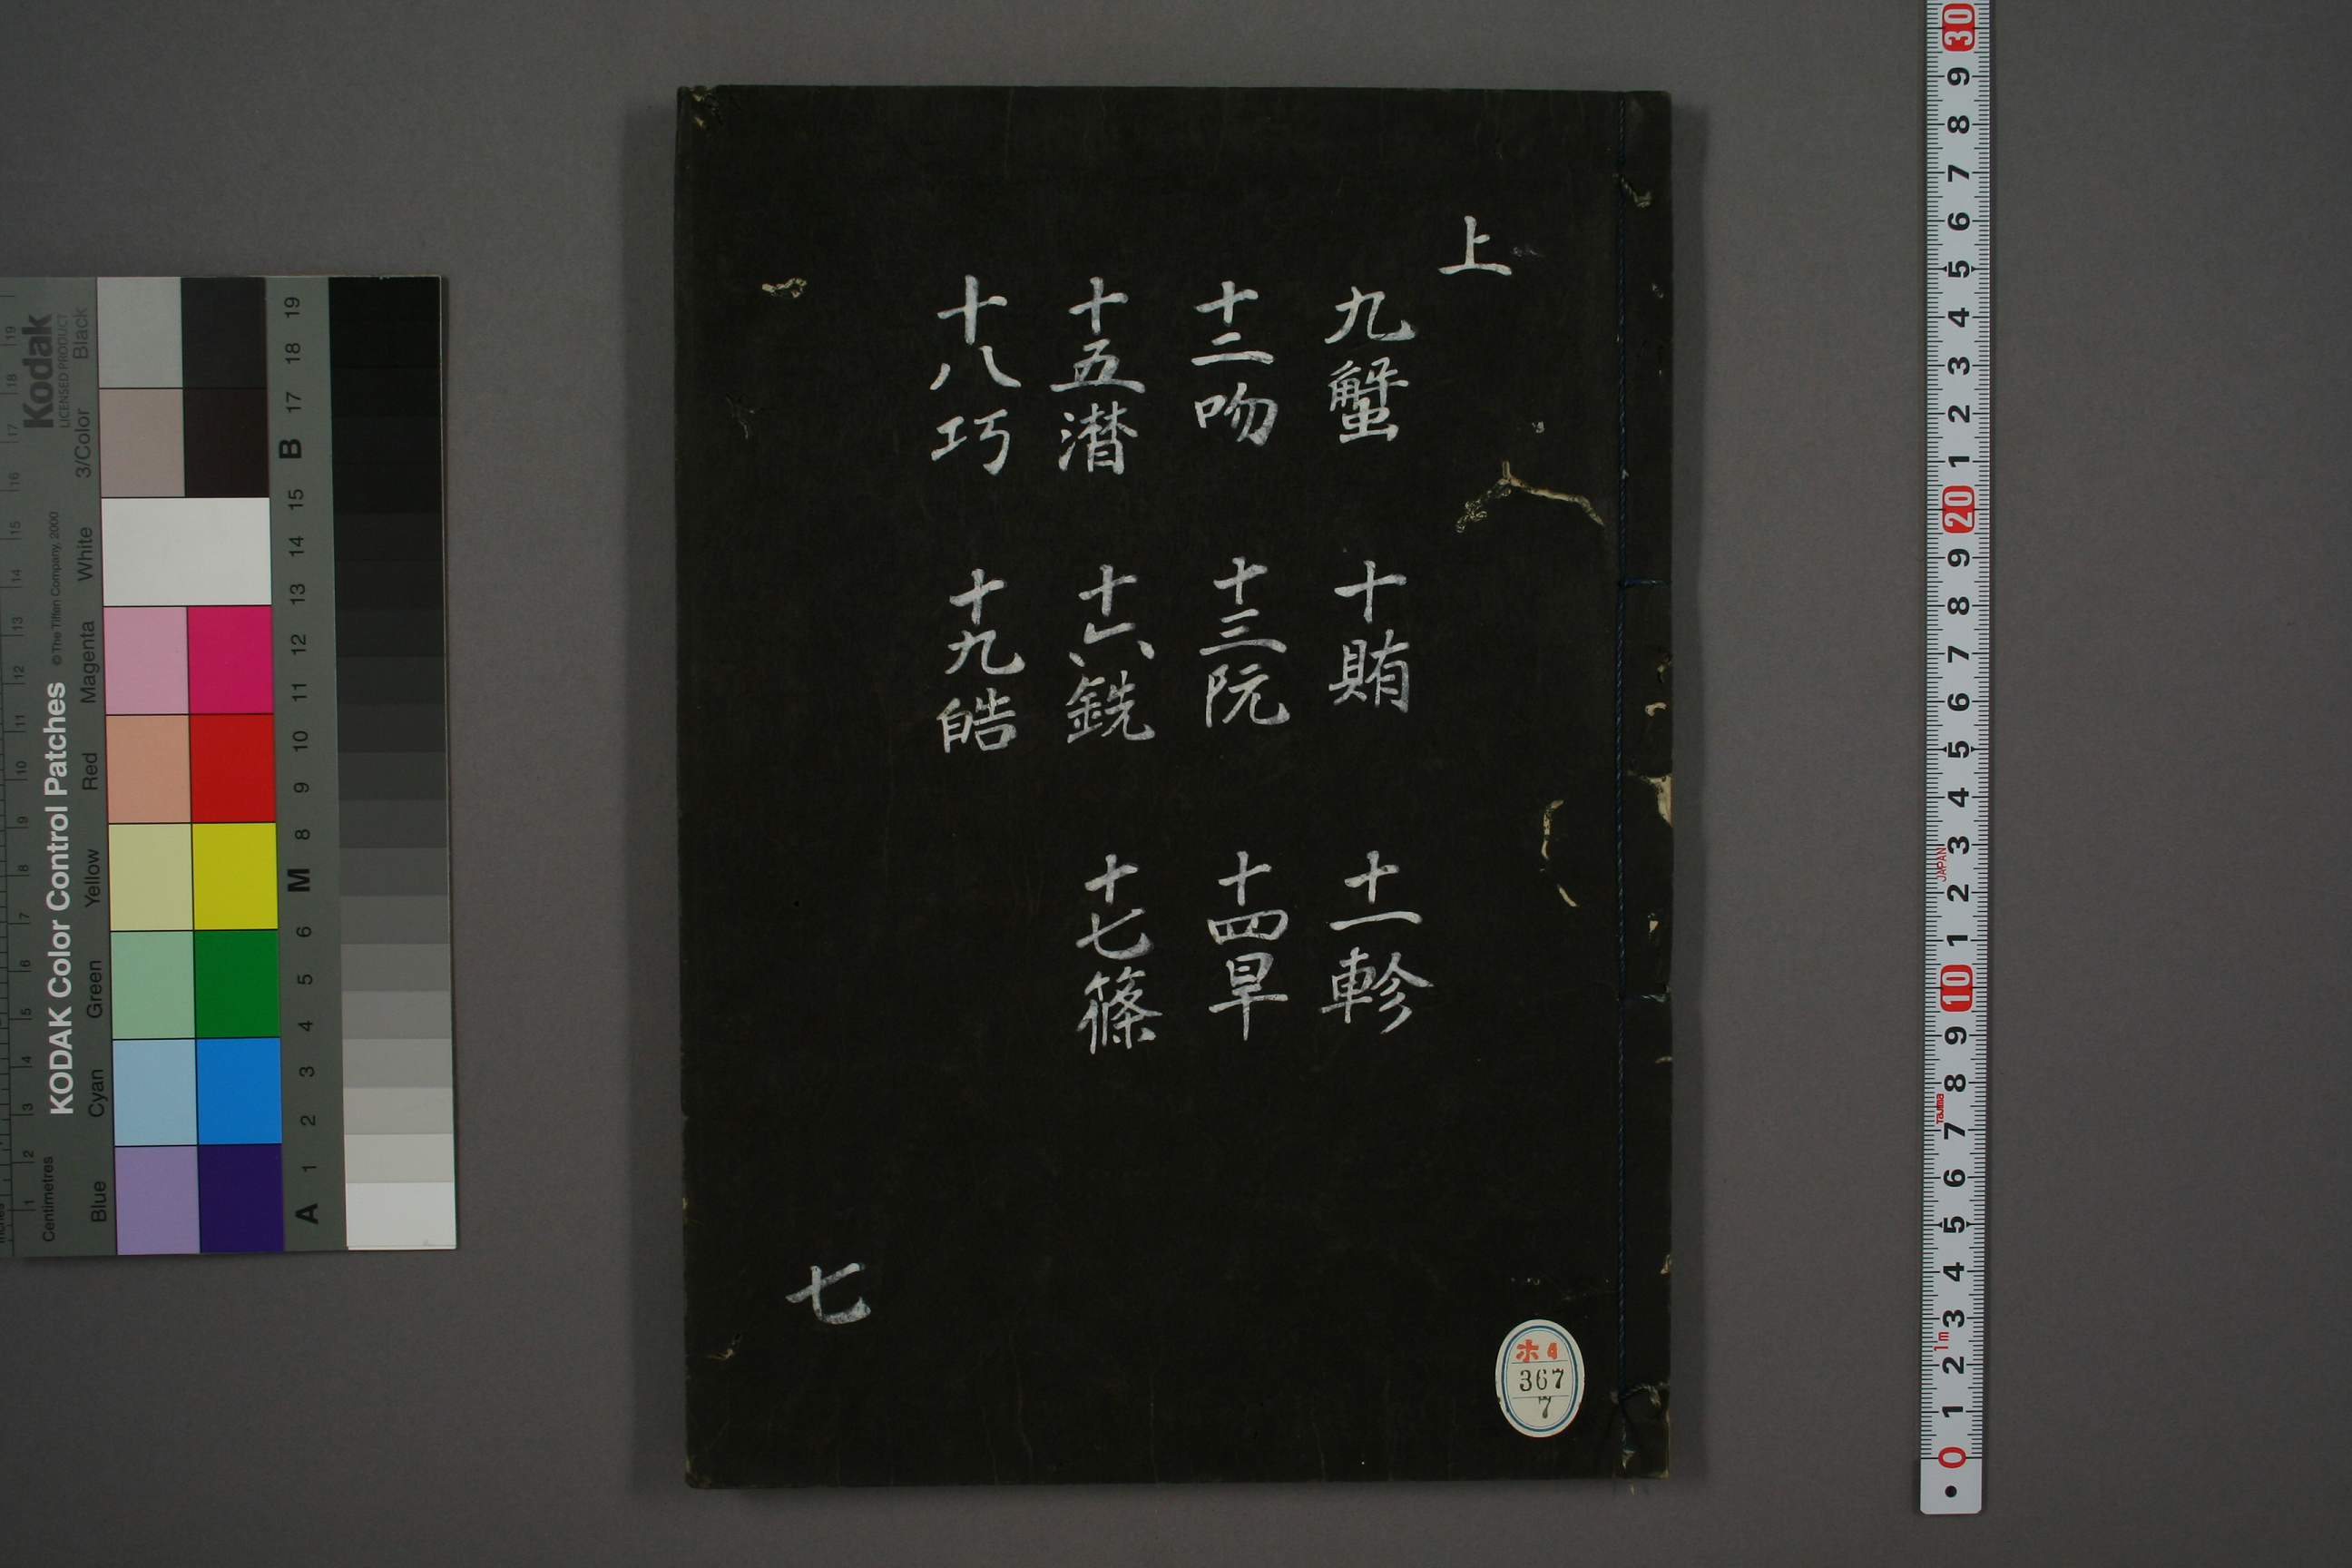 上
九蟹 十賄 十一軫
十二吻 十三阮 十四旱
十五潸 十六銑 十七篠
十八巧 十九皓
七
ホ4
367
7
Kodak
LICENSED PRODUCT
KODAK Color Control Patches
© The Tiffen Company, 2000
Centimetres
Blue Cyan Green Yellow Red Magenta White 3/Color Black
A 1 2 3 4 5 6 M 8 9 10 11 12 13 14 15 B 17 18 19
1 2 3 4 5 6 7 8 9 10 11 12 13 14 15 16 17 18 19
0 1 2 3 4 5 6 7 8 9 10 1 2 3 4 5 6 7 8 9 20 1 2 3 4 5 6 7 8 9 30
1m
Tajima
JAPAN